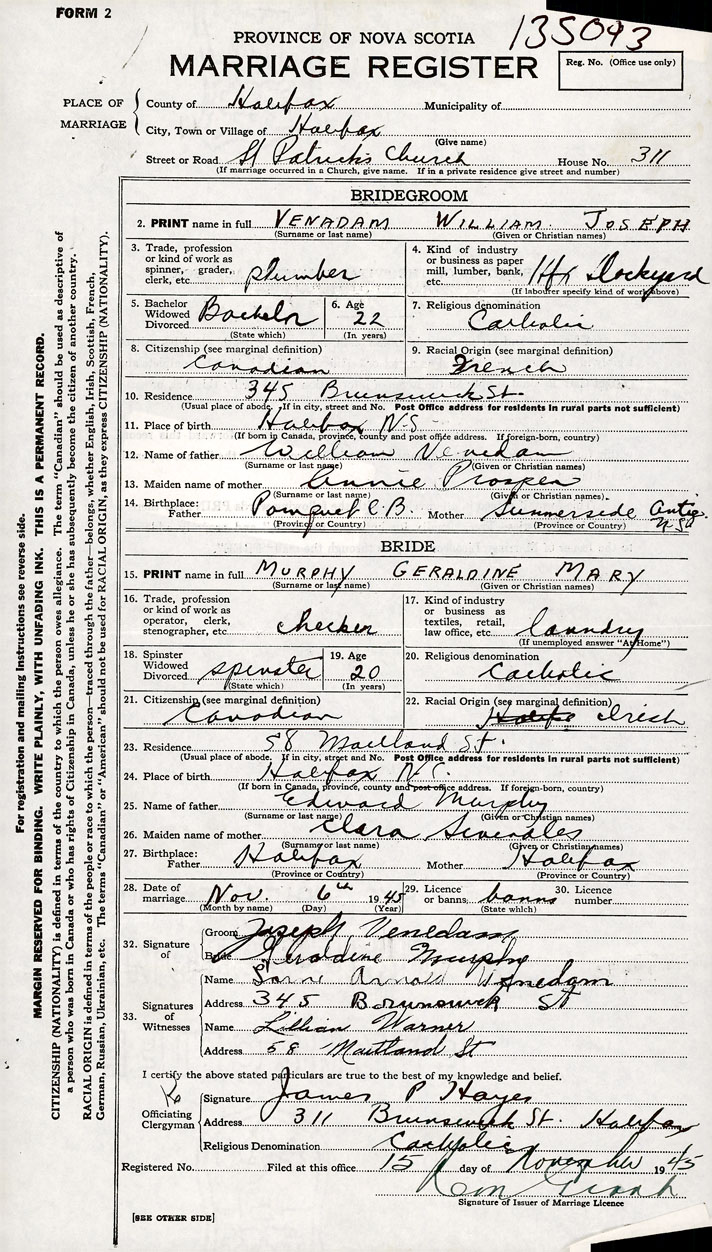 FORM 2
135093
PROVINCE OF NOVA SCOTIA
MARRIAGE REGISTER
Reg. No. (Office use only)
PLACE OF MARRIAGE
County of Halifax Municipality of
City, Town or Village of Halifax
(Give name)
Street or Road St Patrick's Church House No. 311
(If marriage occurred in a Church, give name. If in a private residence give street and number)
BRIDEGROOM
2. PRINT name in full VENADAM WILLIAM JOSEPH
(Surname or last name) (Given or Christian names)
3. Trade, profession or kind of work as spinner, grader, clerk, etc. plumber
4. Kind of industry or business as paper mill, lumber, bank, etc. Hfx Dockyard
(If labourer specify kind of work above)
5. Bachelor Widowed Divorced Bachelor
(State which)
6. Age 22
(In years)
7. Religious denomination
Catholic
8. Citizenship (see marginal definition)
Canadian
9. Racial Origin (see marginal definition)
French
10. Residence 345 Brunswick St.
(Usual place of abode. If in city, street and No. Post Office address for residents in rural parts not sufficient)
11. Place of birth Halifax N.S.
(If born in Canada, province, county and post office address. If foreign-born, country)
12. Name of father William Venedam
(Surname or last name) (Given or Christian names)
13. Maiden name of mother Annie Prosper
(Surname or last name) (Given or Christian names)
14. Birthplace: Father Pomquet C.B. Mother Summerside Antig. N.S.
(Province or Country) (Province or Country)
BRIDE
15. PRINT name in full MURPHY GERALDINE MARY
(Surname or last name) (Given or Christian names)
16. Trade, profession or kind of work as operator, clerk, stenographer, etc. checker
17. Kind of industry or business as textiles, retail, law office, etc. laundry
(If unemployed answer "At Home")
18. Spinster Widowed Divorced spinster
(State which)
19. Age 20
(In years)
20. Religious denomination
Catholic
21. Citizenship (see marginal definition)
Canadian
22. Racial Origin (see marginal definition)
Irish
23. Residence 58 Maitland St.
(Usual place of abode. If in city, street and No. Post Office address for residents in rural parts not sufficient)
24. Place of birth Halifax N.S.
(If born in Canada, province, county and post office address. If foreign-born, country)
25. Name of father Edward Murphy
(Surname or last name) (Given or Christian names)
26. Maiden name of mother Clara
(Surname or last name) (Given or Christian names)
27. Birthplace: Father Halifax Mother Halifax
(Province or Country) (Province or Country)
28. Date of marriage Nov. 6th 1945
(Month by name) (Day) (Year)
29. Licence or banns banns
(State which)
30. Licence number
32. Signature of
Groom Joseph Venedam
Bride Geraldine Murphy
33. Signatures of Witnesses
Name Arnold Venedam
Address 345 Brunswick St
Name Lillian Warner
Address 58 Maitland St
I certify the above stated particulars are true to the best of my knowledge and belief.
Officiating Clergyman
Signature James P Hayes
Address 311 Brunswick St. Halifax
Religious Denomination Catholic
Registered No. Filed at this office 15 day of November 1945
Signature of Issuer of Marriage Licence
[SEE OTHER SIDE]
For registration and mailing instructions see reverse side.
MARGIN RESERVED FOR BINDING. WRITE PLAINLY, WITH UNFADING INK. THIS IS A PERMANENT RECORD.
CITIZENSHIP (NATIONALITY) is defined in terms of the country to which the person owes allegiance. The term "Canadian" should be used as descriptive of
a person who was born in Canada or who has rights of Citizenship in Canada, unless he or she has subsequently become the citizen of another country.
RACIAL ORIGIN is defined in terms of the people or race to which the person—traced through the father—belongs, whether English, Irish, Scottish, French,
German, Russian, Ukrainian, etc. The terms "Canadian" or "American" should not be used for RACIAL ORIGIN, as they express CITIZENSHIP (NATIONALITY).